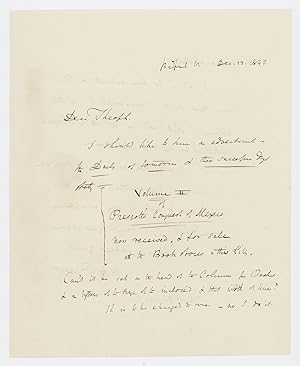 Bedford St Dec. 13. 1843
Dear Theoph.
I should like to have an advertisement
the Daily of tomorrow & two successive days
Volume II
of
Prescott's Conquest of Mexico
now received, & for sale
at the Book Stores in this City.
Can't it be set in the head of the Column for Books
& in letters of the type of the inclosed & this width of lines?
It is to be charged to me — as I do it